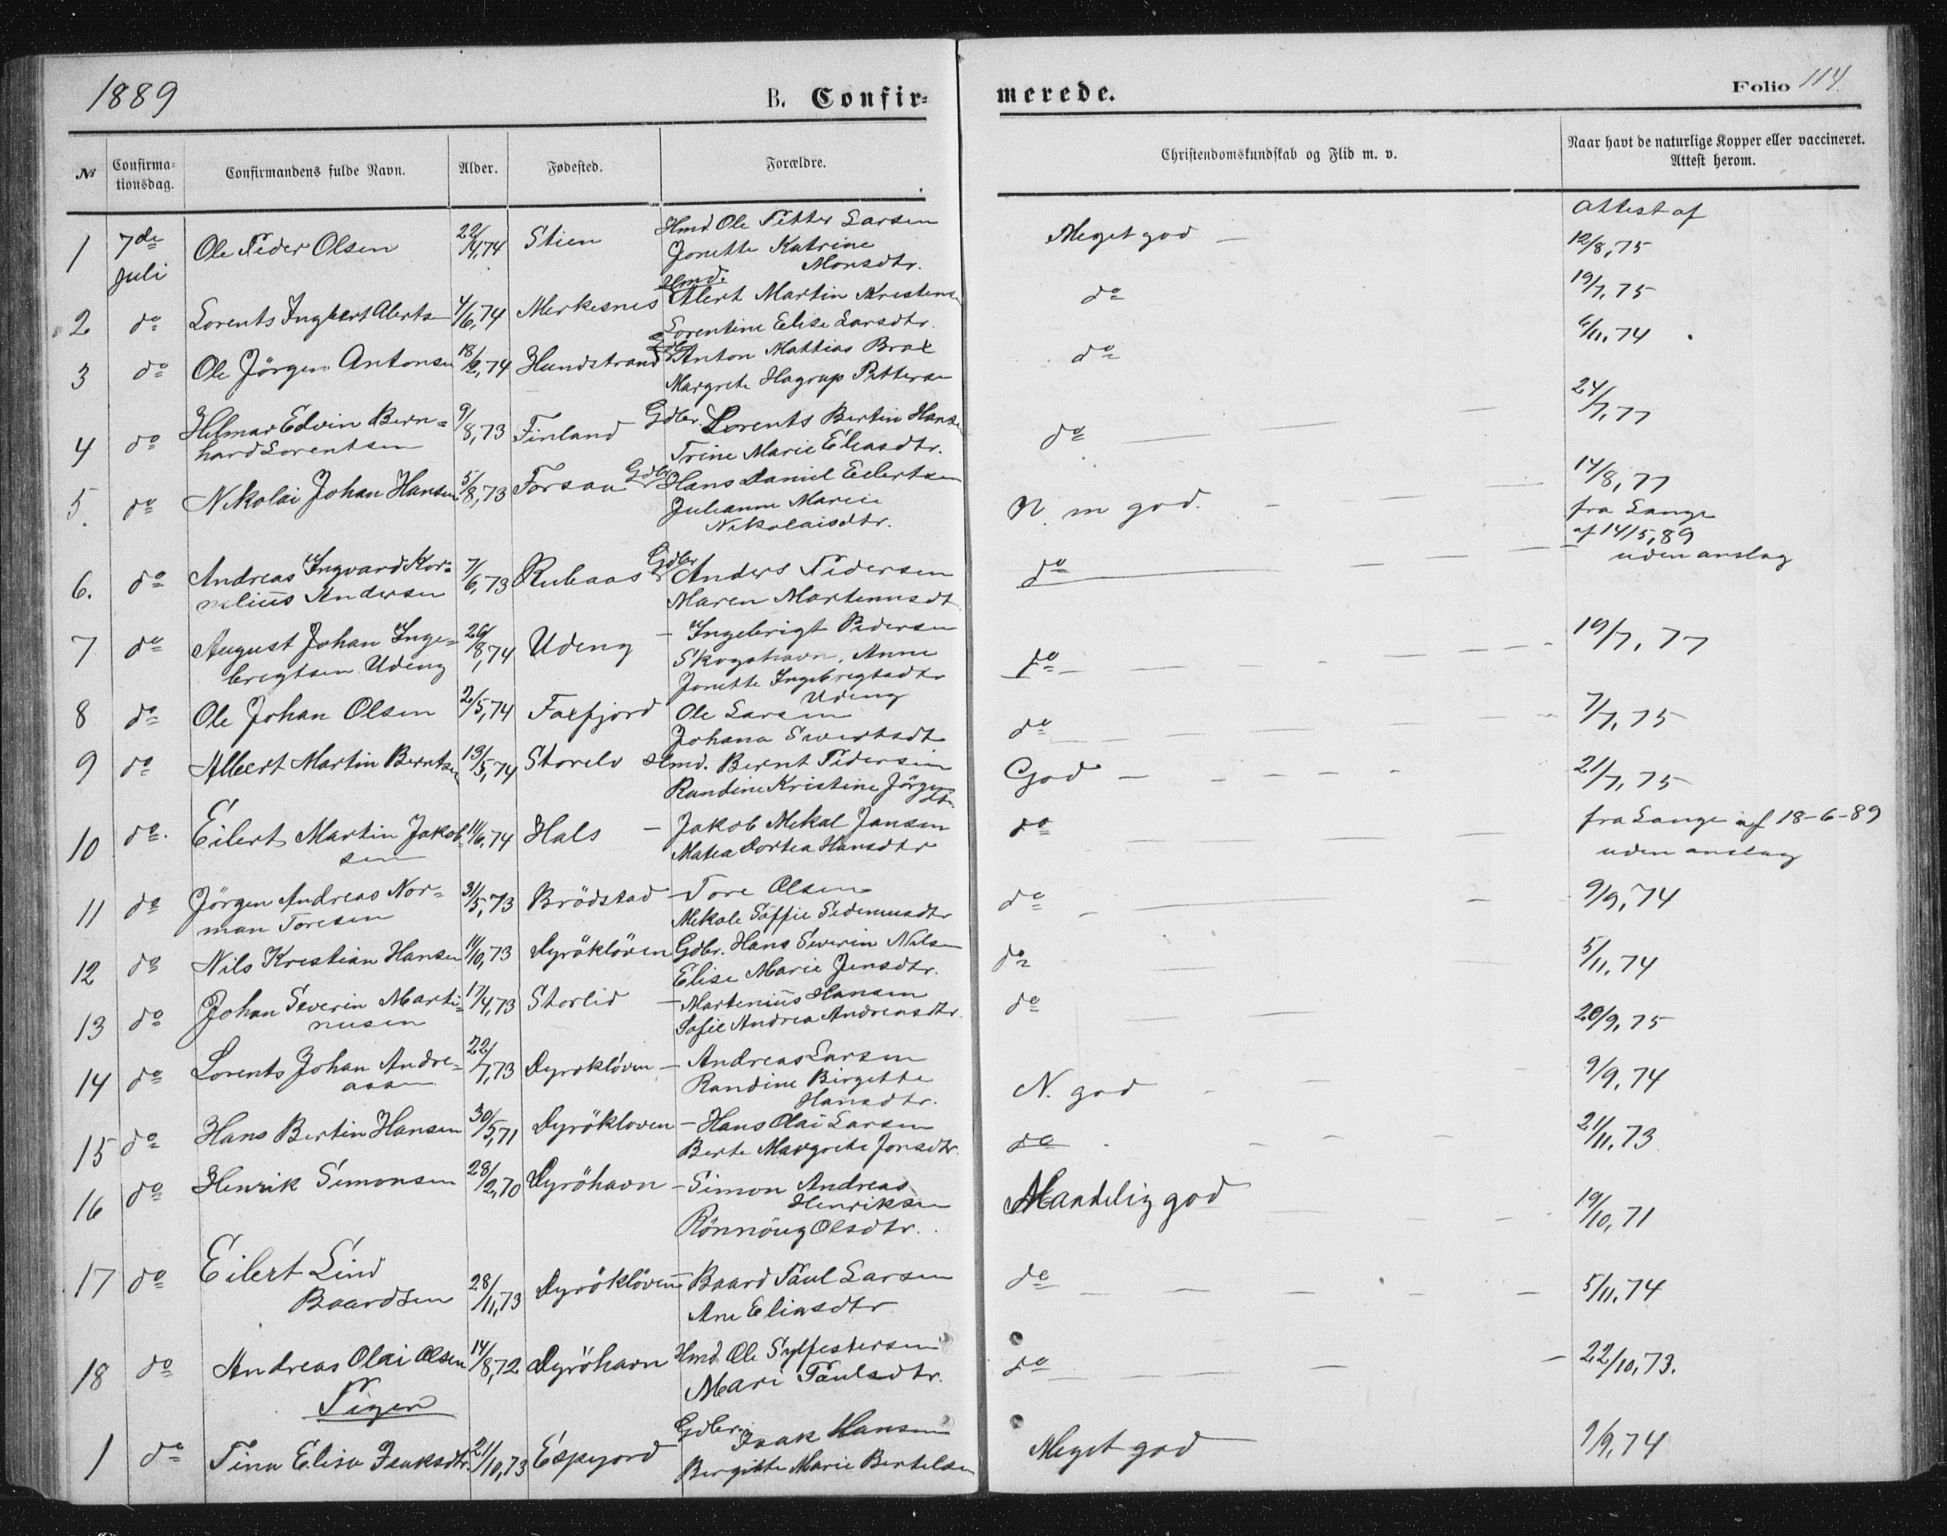 1889
B. Confir-
merede.
Folio 114.
№
Confirma-
tionsdag.
Confirmandens fulde Navn.
Alder.
Fødested.
Forældre.
Christendomskundskab og Flid m. v.
Naar havt de naturlige Kopper eller vaccineret.
Attest herom.
1 7de Juli Ole Peder Olsen 22/4,74 Stien Hmd. Ole Petter Larsen
Jonette Katrine
Monsdtr.
Meget god
Attest af
12/8,75
2 do Lorents Ingbert Alerts 4/6,74 Merkesnes Hmd. Alert Martin Kristens
Lorentine Elise Larsdtr.
do
19/7,75
3 do Ole Jörgen Antonsen 18/2,74 Hundstrand Gdbr. Anton Mattias Brox
Margrete Hagrup Pettersen
do
6/11,74
4 do Hilmar Edvin Bern=
hard Lorentsen 9/8,73 Finland Gdbr. Lorents Bertin Hans
Trine Marie Eliasdtr.
do
24/7,77
5. do Nikolai Johan Hansen 5/8,73 Forsaa Gdbr. Hans Daniel Eilertsen
Julianne Marie
Nikolaisdtr.
N. m god.
14/8,77
fra Lange
af 14/5,89
uden anslag
6. do Andreas Ingvard Kor=
nelius Andersen 7/6,73 Rubaas Gdbr. Anders Pedersen
Maren Martinusdt
do
7 do August Johan Inge=
brigtsen Udeng 26/8,74 Udeng - Ingebrigt Pedersen
Skogshavn, Anne
Jonette Ingebrigtsdtr
Udeng
do
19/7,77
8 do Ole Johan Olsen 2/5,74 Faxfjord Ole Larsen
Johana Sivertsdt
do
7/7,75
9 do Albert Martin Berntsen 13/5,74 Storelv Hmd. Bernt Pedersen
Randine Kristine Jörgens
dtr
God
21/7,75
10 do. Eilert Martin Jakob
sen 11/6,74 Hals - Jakob Mekal Jansen
Matea Dortea Hansdtr
do
fra Lange af 18-6-89
uden anslag
11 do Jörgen Andreas Nor=
man Toresen 31/5,73 Brödstad - Tore Olsen
Mekale Soffie Pedersdtr
do
9/9,74
12 do Nils Kristian Hansen 11/10,73 Dyröklöven Gdbr. Hans Severin Nilsen
Elise Marie Jensdtr.
do
5/11,74
13 do Johan Severin Marti=
nusen 17/4,73 Storlid - Martenius Hansen
Sofie Andrea Andreasdtr.
do
20/9,75
14 do Lorents Johan Andre=
assen 22/7,73 Dyröklöven - Andreas Larsen
Randine Birgitte
Hansdtr.
N. god
9/9,74
15 do Hans Bertin Hansen 30/5,71 Dyröklöven - Hans Olai Larsen
Berte Margrete Jonsdtr.
do
21/11,73
16 do Henrik Simonsen 28/2,70 Dyröhavn - Simon Andreas
Henriksen
Rönnöug Olsdtr.
Mandelig god
19/10,71
17 do Eilert Lind
Baardsen 28/11,73 Dyröklöven - Baard Paul Larsen
Ane Eliasdtr
do
5/11,74
18 do Andreas Olai Olsen 14/8,72 Dyröhavn Hmd. Ole Sylfestersen
Mari Paulsdtr.
do
22/10,73.
Piger
1 do Tina Elisa Isaksdtr 21/10,73 Espejord Gdbr. Isak Hansen
Birgitte Marie Bertelsen
Meget god
9/9,74